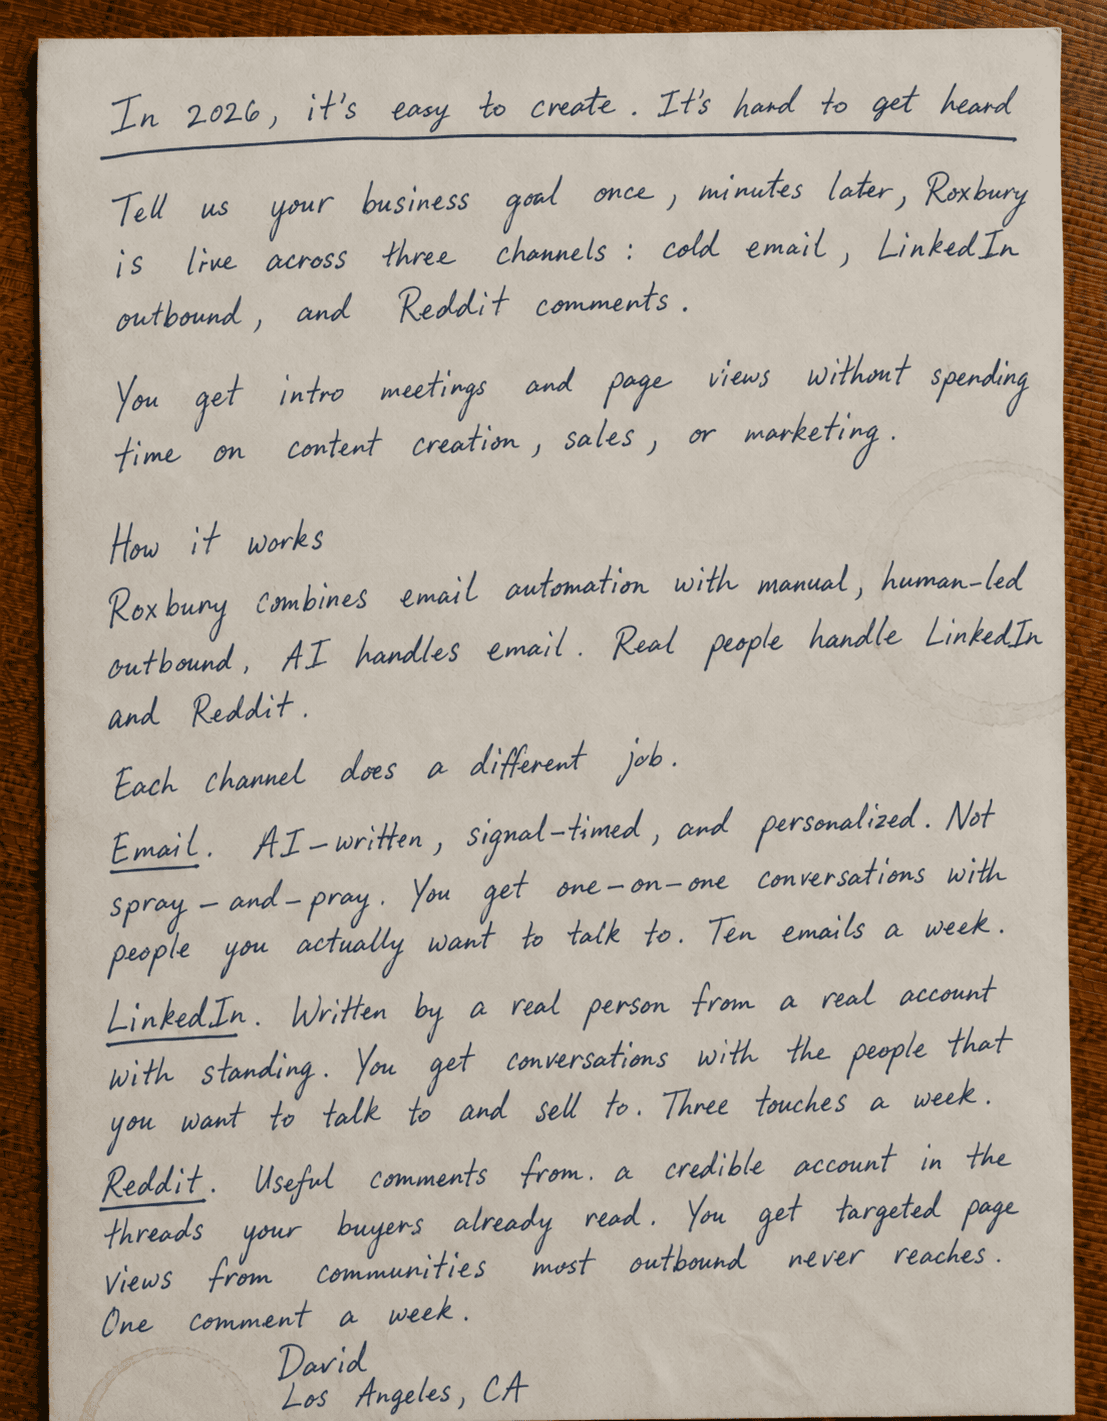 In 2026, it's easy to create. It's hard to get heard
Tell us your business goal once, minutes later, Roxbury
is live across three channels: cold email, LinkedIn
outbound, and Reddit comments.
You get intro meetings and page views without spending
time on content creation, sales, or marketing.
How it works
Roxbury combines email automation with manual, human-led
outbound, AI handles email. Real people handle LinkedIn
and Reddit.
Each channel does a different job.
Email. AI-written, signal-timed, and personalized. Not
spray-and-pray. You get one-on-one conversations with
people you actually want to talk to. Ten emails a week.
LinkedIn. Written by a real person from a real account
with standing. You get conversations with the people that
you want to talk to and sell to. Three touches a week.
Reddit. Useful comments from. a credible account in the
threads your buyers already read. You get targeted page
views from communities most outbound never reaches.
One comment a week.
David
Los Angeles, CA